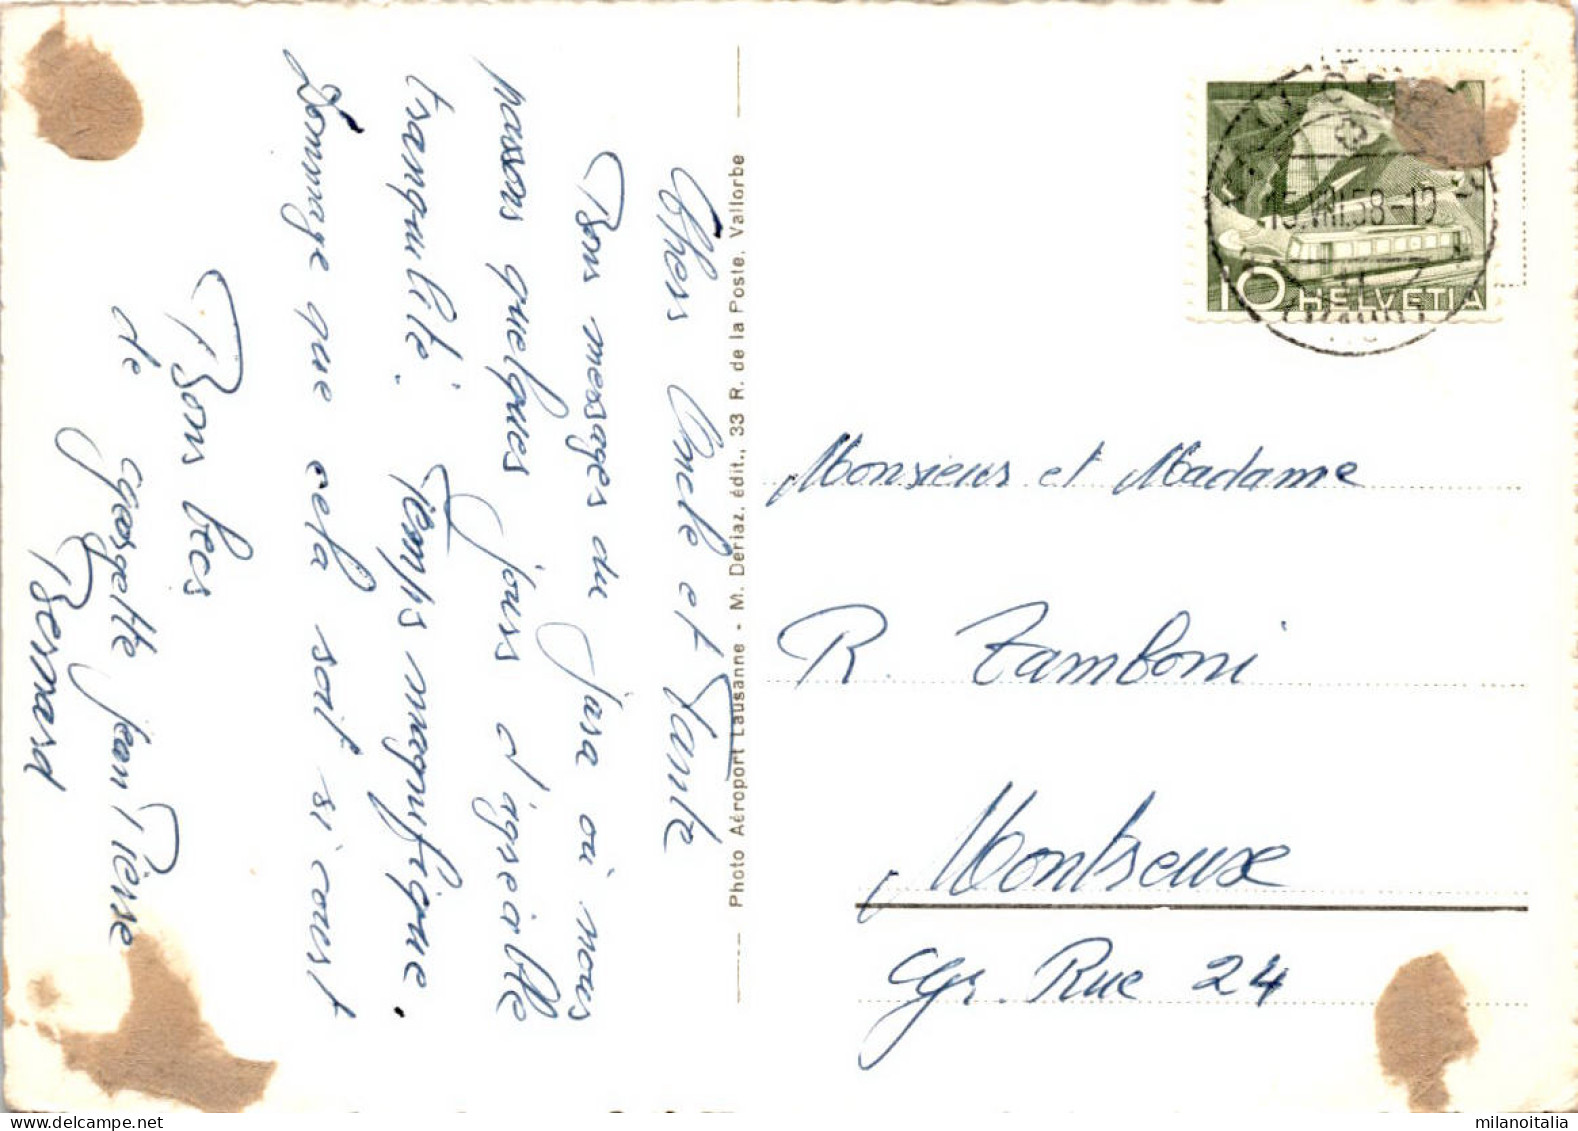 Chers Oncle et Tante
Bons messages du Jura où nous
passons quelques jours d'agréable
tranquilité. Temps magnifique.
Dommage que cela soit si court
Bons becs
de Georgette Jean Pierre
Bernard
Photo Aéroport Lausanne - M. Deriaz, édit., 33 R. de la Poste, Vallorbe
15.VIII.58-19
10 HELVETIA
Monsieur et Madame
R. Zamboni
Montreux
Gr. Rue 24
milanoitalia